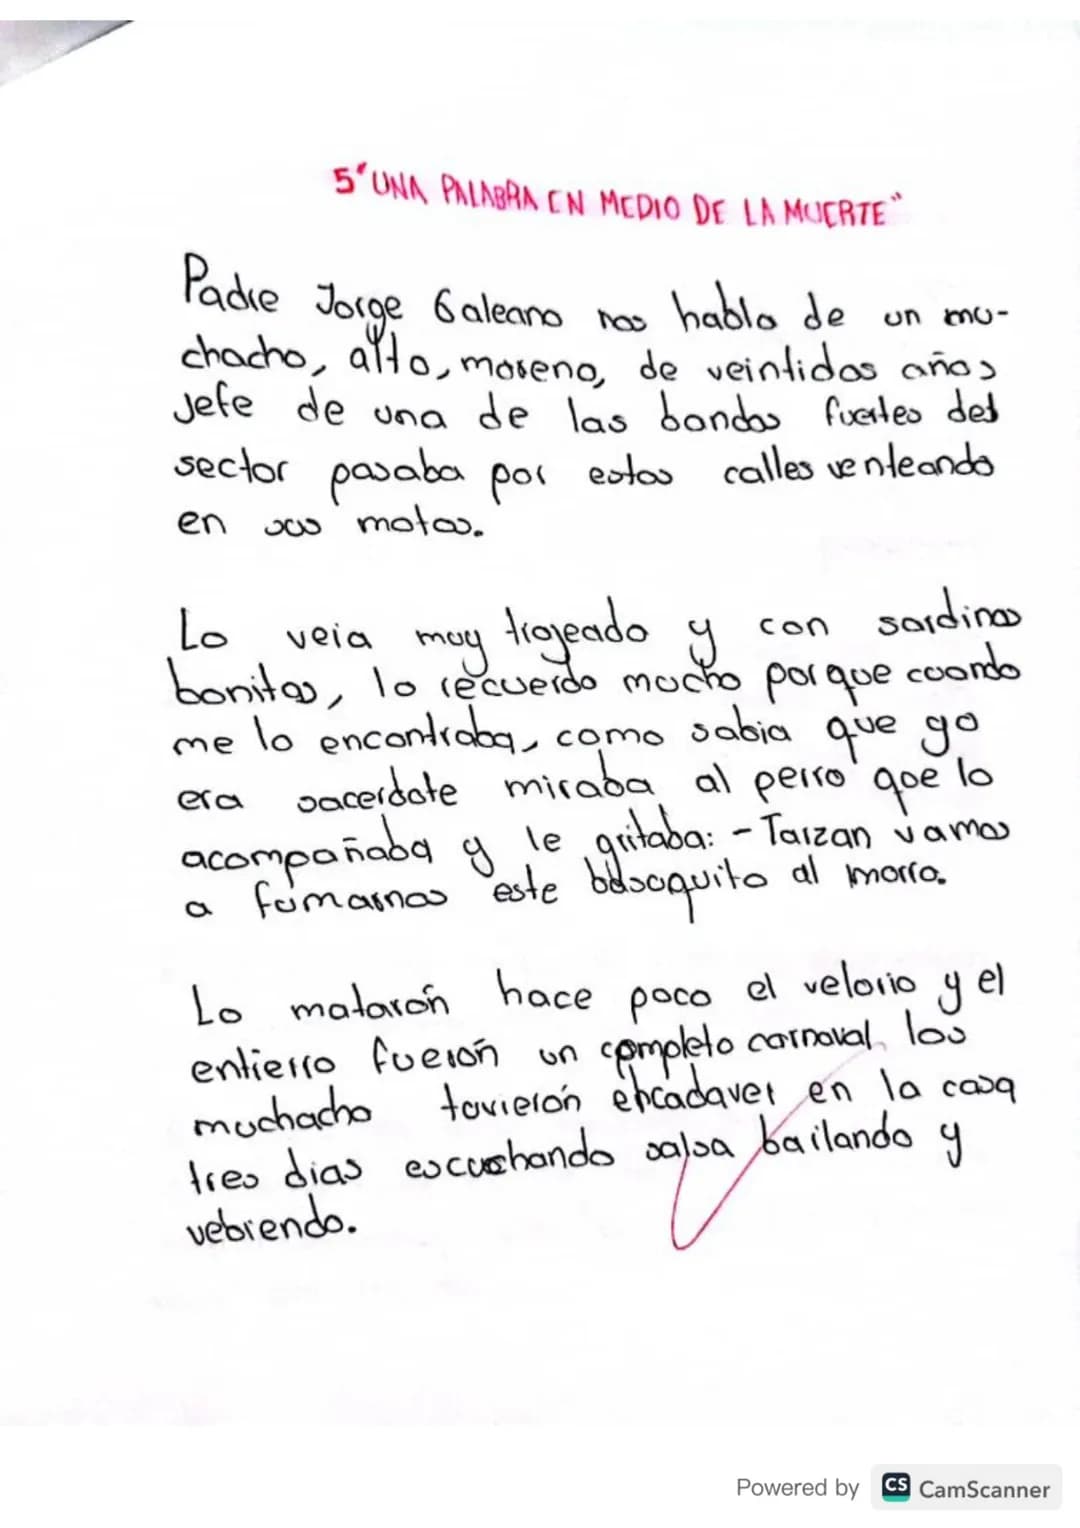 5"UNA PALABRA EN MEDIO DE LA MUERTE"
Padre Jorge Galeano nos habla de un mu-
chacho, alto, moreno, de veintidos años
jefe de una de las bandas fuertes del
sector pasaba por estas calles venteando
en sus motos.
Lo veia muy trajeado y con sardinas
bonitas, lo recuerdo mucho porque cuando
me lo encontraba, como sabia que yo
era sacerdote miraba al perro que lo
acompañaba y le gritaba: - Tarzan vamos
a fumarnos este basuquito al morro.
Lo matarón hace poco el velorio y el
entierro fuerón un completo carnaval, los
muchacho tuvierón el cadaver en la casa
tres dias escuchando salsa bailando y
vebiendo.
Powered by CS CamScanner